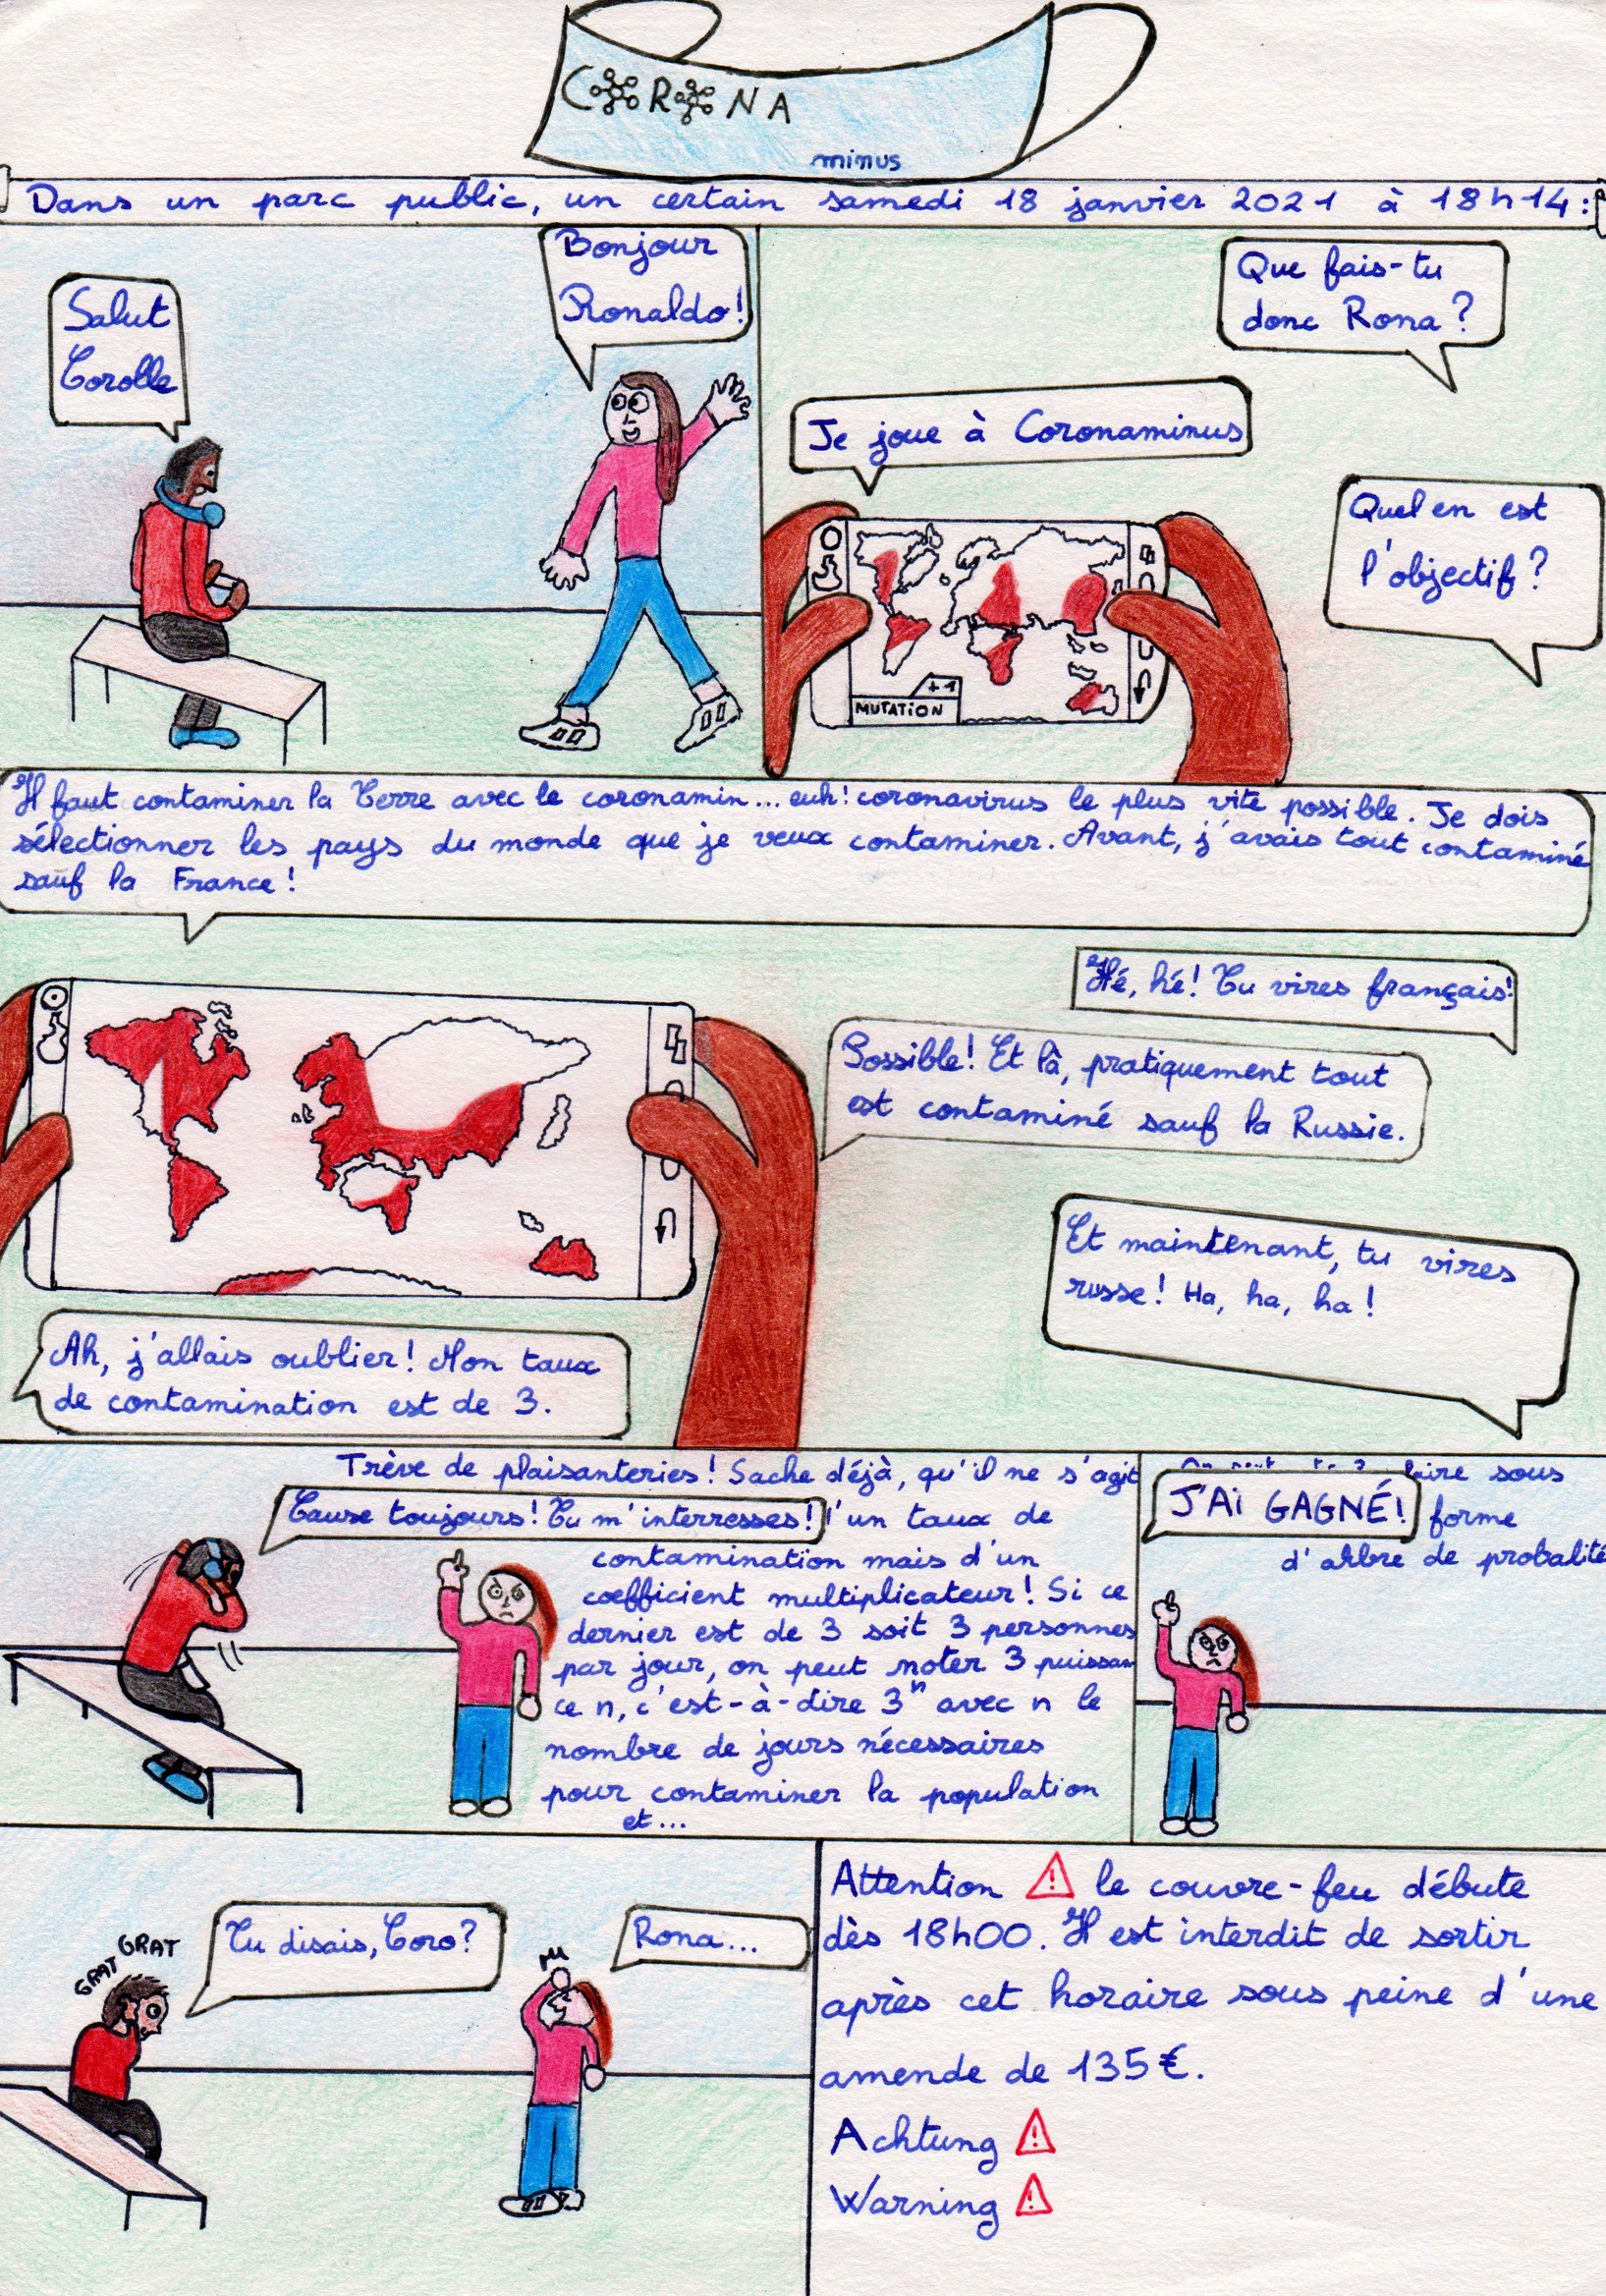 CORONA
minus
Dans un parc public, un certain samedi 18 janvier 2021 à 18h14:
Salut
Corolle
Bonjour
Ronaldo!
Que fais-tu
donc Rona?
Je joue à Coronaminus
Quel en est
l'objectif?
+1
MUTATiON
Il faut contaminer la Terre avec le coronamin... euh! coronavirus le plus vite possible. Je dois
sélectionner les pays du monde que je veux contaminer. Avant, j'avais tout contaminé
sauf la France!
Hé, hé! Tu vires français!
Possible! Et là, pratiquement tout
est contaminé sauf la Russie.
Et maintenant, tu vires
russe! Ha, ha, ha!
Ah, j'allais oublier! Mon taux
de contamination est de 3.
Trève de plaisanteries! Sache déjà, qu'il ne s'agit
Cause toujours! Tu m'interresses!
'un taux de
contamination mais d'un
coefficient multiplicateur! Si ce
dernier est de 3 soit 3 personnes
par jour, on peut noter 3 puissan
ce n, c'est-à-dire 3ⁿ avec n le
nombre de jours nécessaires
pour contaminer la population
et...
sous
J'Ai GAGNÉ!
forme
d'arbre de probalité
GRAT GRAT
Tu disais, Coro?
Rona...
Attention ⚠ le couvre-feu débute
dès 18h00. Il est interdit de sortir
après cet horaire sous peine d'une
amende de 135€.
Achtung ⚠
Warning ⚠